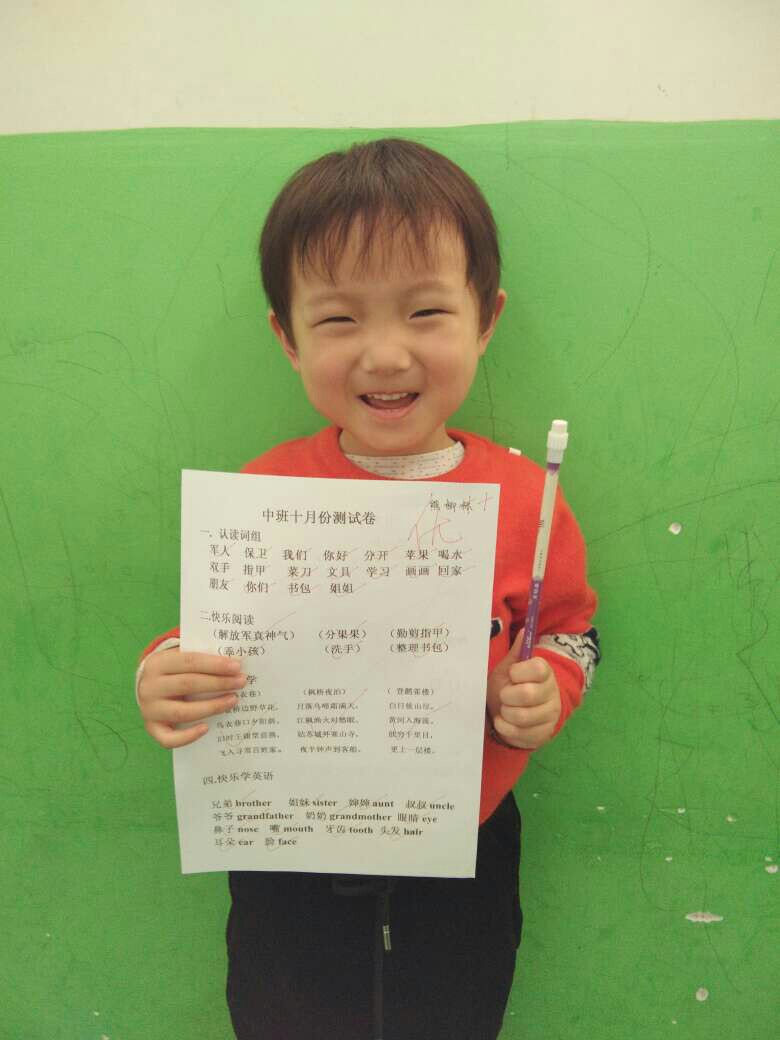 中班十月份测试卷
优++
一、认读词组
军人 保卫 我们 你好 分开 苹果 喝水
双手 指甲 菜刀 文具 学习 画画 回家
朋友 你们 书包 姐姐
二.快乐阅读
(解放军真神气) (分果果) (勤剪指甲)
(乖小孩) (洗手) (整理书包)
学
衣巷) (枫桥夜泊) (登鹳雀楼)
桥边野草花, 月落乌啼霜满天, 白日依山尽,
乌衣巷口夕阳斜。 江枫渔火对愁眠。 黄河入海流。
旧时王谢堂前燕, 姑苏城外寒山寺, 欲穷千里目,
飞入寻常百姓家。 夜半钟声到客船。 更上一层楼。
四.快乐学英语
兄弟 brother 姐妹 sister 婶婶 aunt 叔叔 uncle
爷爷 grandfather 奶奶 grandmother 眼睛 eye
鼻子 nose 嘴 mouth 牙齿 tooth 头发 hair
耳朵 ear 脸 face